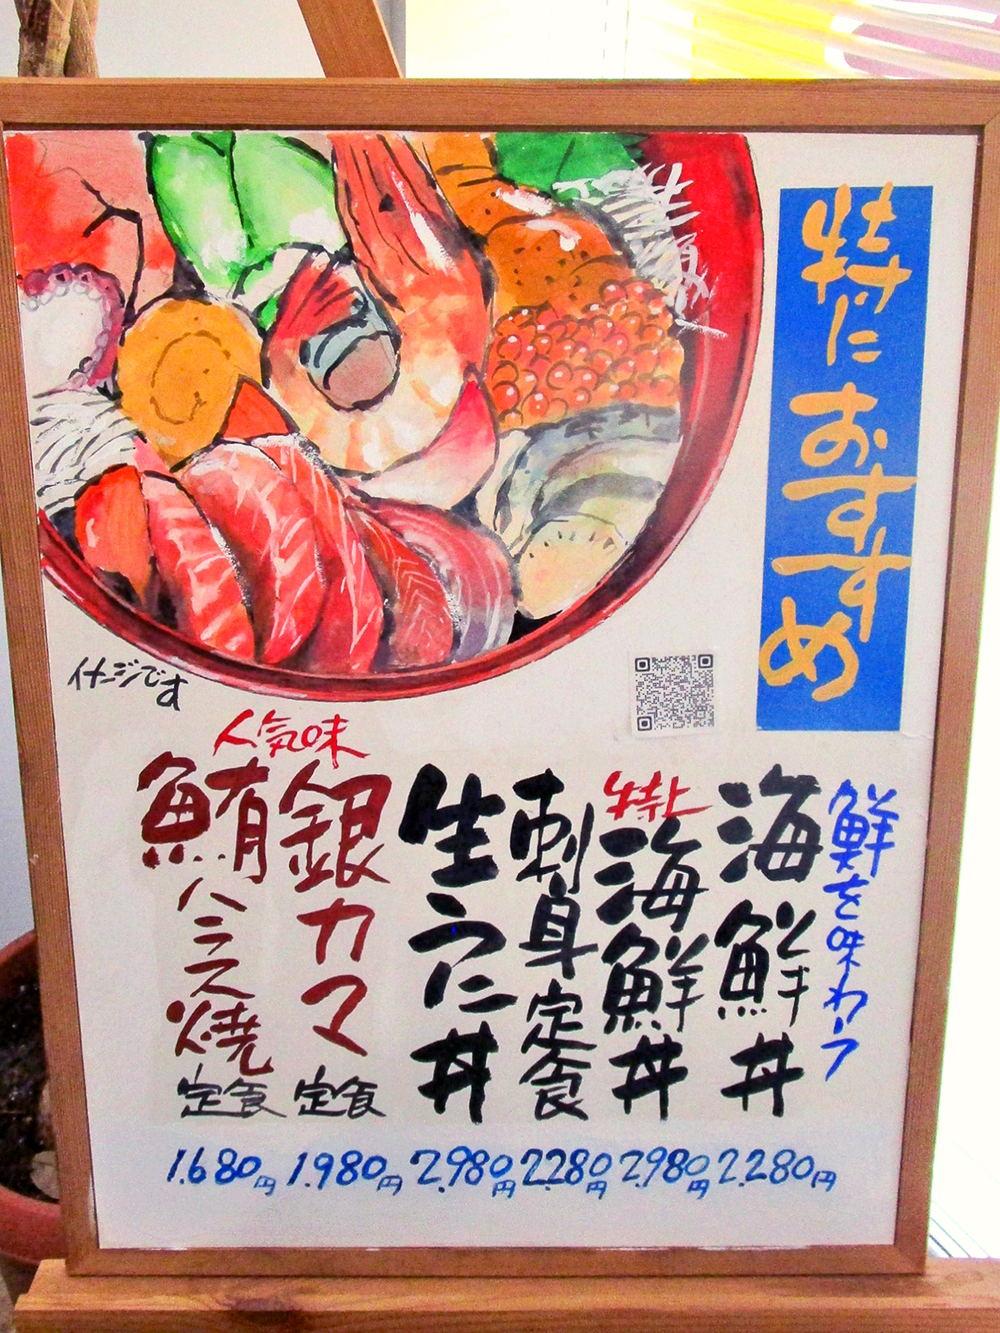 特におすすめ
イメージです
鮮を味わう
海鮮丼
2.280円
特上
海鮮丼
2.980円
刺身定食
2.280円
生うに丼
2.980円
人気味
銀カマ
定食
1.980円
鮪ハラス焼
定食
1.680円